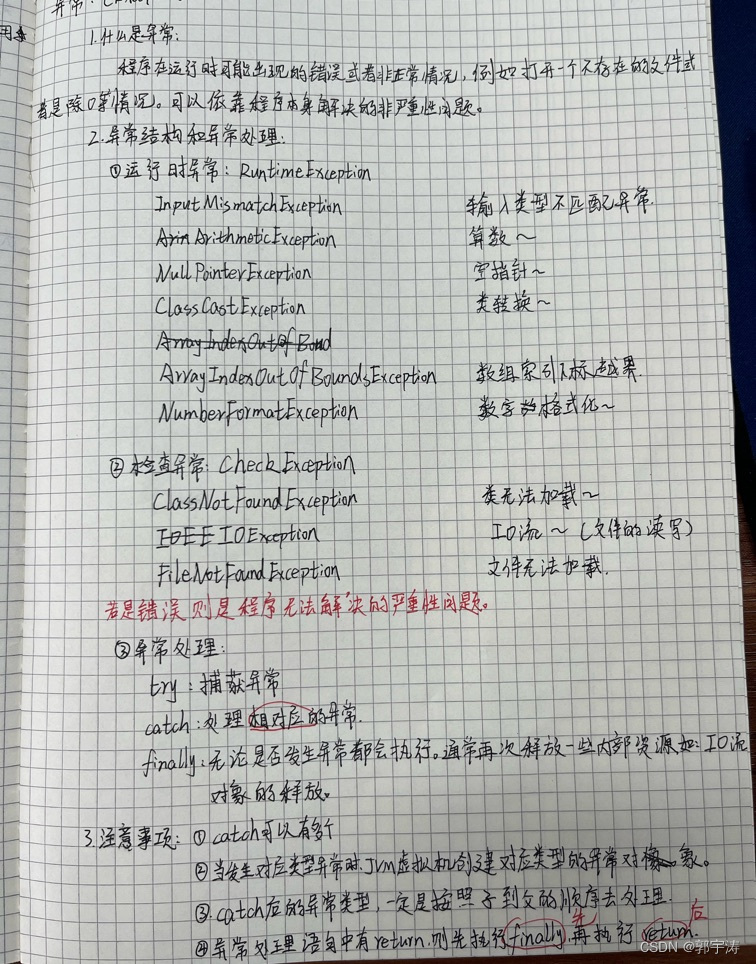 异常:
用来
1.什么是异常:
程序在运行时可能出现的错误或者非正常情况,例如打开一个不存在的文件或
者是除0等情况。可以依靠程序本身解决的非严重性问题。
2.异常结构和异常处理:
①运行时异常: RuntimeException
InputMismatchException 输入类型不匹配异常.
ArithmeticException 算数~
NullPointerException 空指针~
ClassCastException 类转换~
ArrayIndexOutOfBound
ArrayIndexOutOfBoundsException 数组索引下标越界.
NumberFormatException 数字的格式化~
②检查异常: CheckException
ClassNotFoundException 类无法加载~
IOException IO流~(文件的读写)
FileNotFoundException 文件无法加载.
若是错误则是程序无法解决的严重性问题。
③异常处理:
try:捕获异常
catch:处理相对应的异常.
finally:无论是否发生异常都会执行。通常再次释放一些内部资源如:IO流
对象的释放。
3.注意事项:①catch可以有多个
②当发生对应类型异常时.JVM虚拟机创建对应类型的异常对象。
③.catch后的异常类型,一定是按照子到父的顺序去处理.
先 后
④异常处理语句中有return.则先执行finally.再执行return.
CSDN @郭宇涛